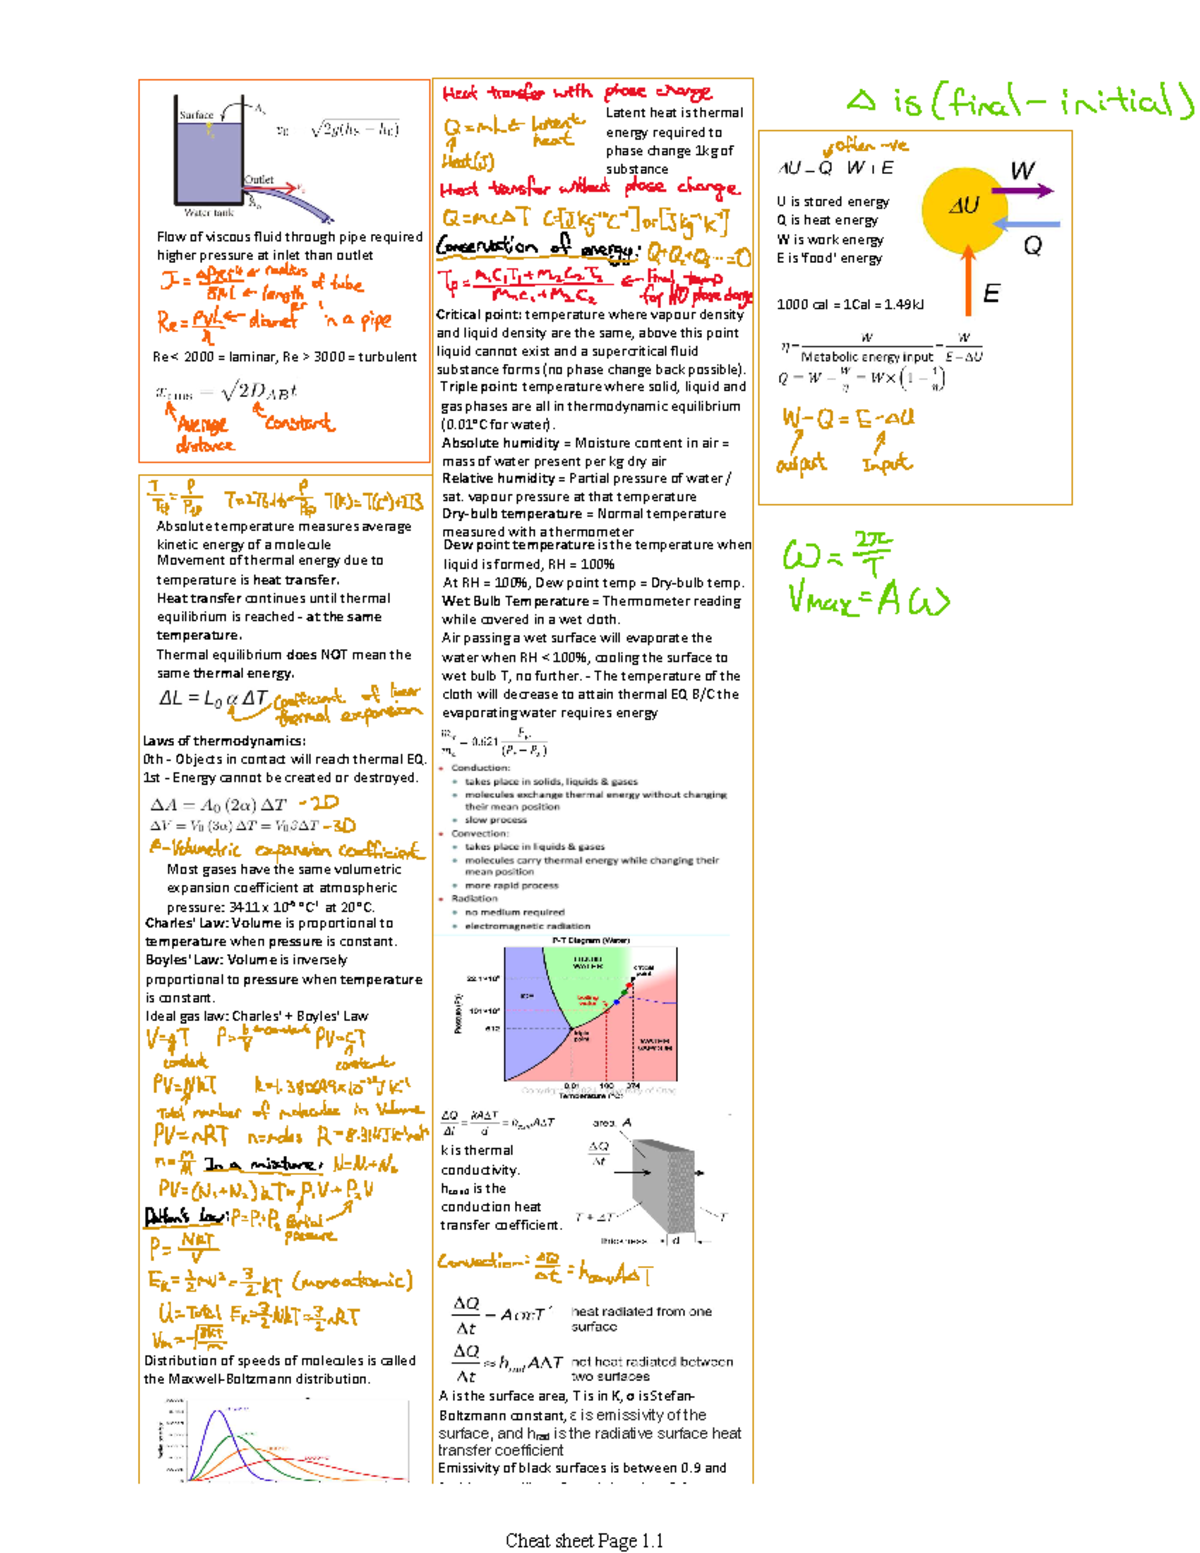 Surface
Outlet
Water tank
Flow of viscous fluid through pipe required
higher pressure at inlet than outlet
radius
length of tube
diameter in a pipe
Re< 2000 = laminar, Re > 3000 = turbulent
Average
distance
constant
T(K)=T(C°)+273
Absolute temperature measures average
kinetic energy of a molecule
Movement of thermal energy due to
temperature is heat transfer.
Heat transfer continues until thermal
equilibrium is reached - at the same
temperature.
Thermal equilibrium does NOT mean the
same thermal energy.
ΔL = L₀ α ΔT
coefficient of linear
thermal expansion
Laws of thermodynamics:
0th - Objects in contact will reach thermal EQ.
1st - Energy cannot be created or destroyed.
ΔA = A₀ (2α) ΔT - 2D
ΔV = V₀ (3α) ΔT = V₀βΔT - 3D
β-Volumetric expansion coefficient
Most gases have the same volumetric
expansion coefficient at atmospheric
pressure: 3411 x 10⁻⁶ °C⁻¹ at 20°C.
Charles' Law: Volume is proportional to
temperature when pressure is constant.
Boyles' Law: Volume is inversely
proportional to pressure when temperature
is constant.
Ideal gas law: Charles' + Boyles' Law
constant
constant
PV=NkT
Total number of molecules in Volume
PV=nRT n=moles
In a mixture: N=N₁+N₂
PV=(N₁+N₂)kT=P₁V+P₂V
Dalton's Law: P=P₁+P₂ Partial
pressure
P= NkT/V
Eₖ=½mv²=3/2 kT (monoatomic)
U=Total Eₖ=3/2 NkT=3/2 nRT
Distribution of speeds of molecules is called
the Maxwell-Boltzmann distribution.
Heat transfer with phase change
Q=mL ← Latent
heat
Heat(J)
Latent heat is thermal
energy required to
phase change 1kg of
substance
Heat transfer without phase change
Q=mcΔT C=[Jkg⁻¹C⁻¹] or [Jkg⁻¹K⁻¹]
Conservation of energy: Q₁+Q₂+Q₃...=0
← Final temp
for NO phase change
Critical point: temperature where vapour density
and liquid density are the same, above this point
liquid cannot exist and a supercritical fluid
substance forms (no phase change back possible).
Triple point: temperature where solid, liquid and
gas phases are all in thermodynamic equilibrium
(0.01°C for water).
Absolute humidity = Moisture content in air =
mass of water present per kg dry air
Relative humidity = Partial pressure of water /
sat. vapour pressure at that temperature
Dry-bulb temperature = Normal temperature
measured with a thermometer
Dew point temperature is the temperature when
liquid is formed, RH = 100%
At RH = 100%, Dew point temp = Dry-bulb temp.
Wet Bulb Temperature = Thermometer reading
while covered in a wet cloth.
Air passing a wet surface will evaporate the
water when RH < 100%, cooling the surface to
wet bulb T, no further. - The temperature of the
cloth will decrease to attain thermal EQ B/C the
evaporating water requires energy
Conduction:
takes place in solids, liquids & gases
molecules exchange thermal energy without changing
their mean position
slow process
Convection:
takes place in liquids & gases
molecules carry thermal energy while changing their
mean position
more rapid process
Radiation
no medium required
electromagnetic radiation
P-T Diagram (Water)
LIQUID
WATER
ICE
WATER
VAPOUR
Pressure (Pa)
Temperature (°C)
0.01 100 374
k is thermal
conductivity.
h_cond is the
conduction heat
transfer coefficient.
area, A
T + ΔT
T
thickness d
Convection: ΔQ/Δt = h_conv AΔT
heat radiated from one
surface
ΔQ/Δt ≈ h_rad AΔT
net heat radiated between
two surfaces
A is the surface area, T is in K, σ is Stefan-
Boltzmann constant, ε is emissivity of the
surface, and h_rad is the radiative surface heat
transfer coefficient
Emissivity of black surfaces is between 0.9 and
Δ is (final - initial)
often -ve
U is stored energy
Q is heat energy
W is work energy
E is 'food' energy
ΔU
W
Q
E
1000 cal = 1Cal = 1.49kJ
η = W / Metabolic energy input = W / E − ΔU
W-Q = E-ΔU
output
Input
ω = 2π/T
Vmax = Aω
Cheat sheet Page 1.1